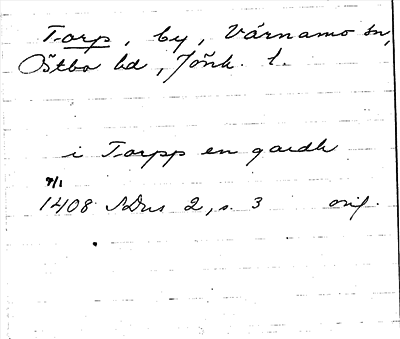 Torp, by, Värnamo sn,
Östbo hd, Jönk. l.
i Torpp en gardh
7/1
1408 SDns 2, s. 3 orig.